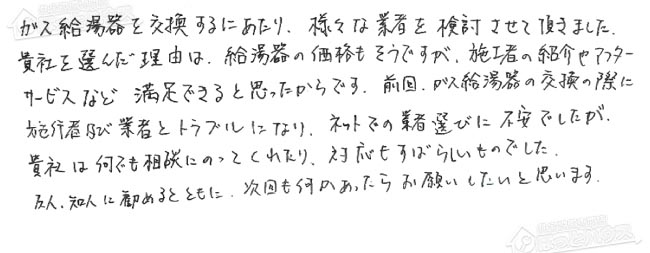 ガス給湯器を交換するにあたり、様々な業者を検討させて頂きました。
貴社を選んだ理由は、給湯器の価格もそうですが、施工者の紹介やアフター
サービスなど 満足できると思ったからです。前回、ガス給湯器の交換の際に
施行者及び業者とトラブルになり、ネットでの業者選びに不安でしたが、
貴社は何でも相談にのってくれたり、対応もすばらしいものでした。
友人、知人に勧めるとともに、次回も何かあったらお願いしたいと思います。